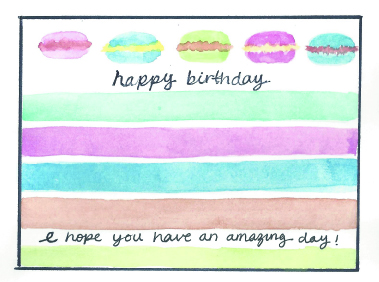 happy birthday
e hope you have an amazing day!